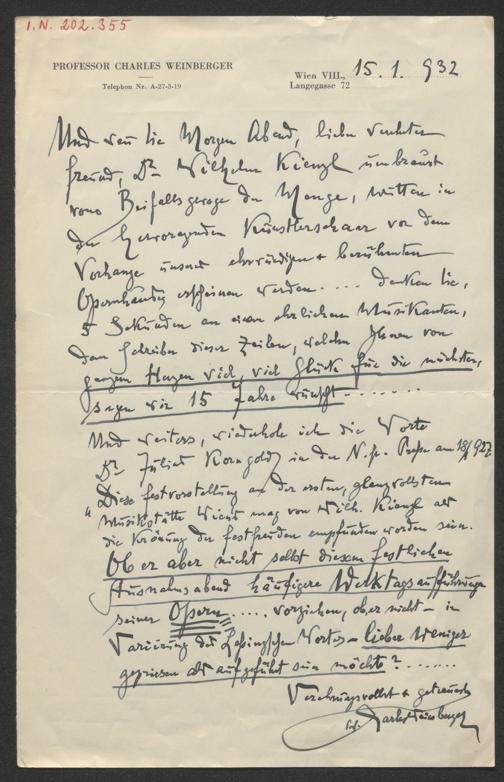 I.N. 202.355
PROFESSOR CHARLES WEINBERGER
Telephon Nr. A-27-3-19
Wien VIII., 15. 1. 932
Langegasse 72
Und wenn Sie Morgen Abend, lieber verehrter
Freund, Dr. Wilhelm Kienzl umbraust
vom Beifalls der Menge, mitten in
der hervorragenden Künstlerschaar vor dem
Vorhange unseres ehrwürdigen + berühmten
Opernhauses erscheinen werden .... denken Sie,
5 Sekunden an einen ehrlichen Musikanten,
dem Schreiber dieser Zeilen, welcher Ihnen von
ganzem Herzen viel, viel Glück für die nächsten,
sagen wir 15 Jahre wünscht .......
Und weiters, wiederhole ich die Worte
Dr. Julius Korngolds in der N. fr. Presse am 18/ 927
"Diese Festvorstellung an der ersten, glanzvollsten
Musikstätte Wiens mag von Wilh. Kienzl als
die Krönung der Festfreuden empfunden worden sein.
Ob er aber nicht selbst diesem festlichen
Ausnahmsabend häufigere Werktagsaufführungen
seiner Opern ..... vorziehen, ob er nicht – in
Variierung des Lessing'schen Wortes – lieber weniger
gepriesen als aufgeführt sein möchte? .......
Verehrungsvollst + getreuest
Charles Weinberger